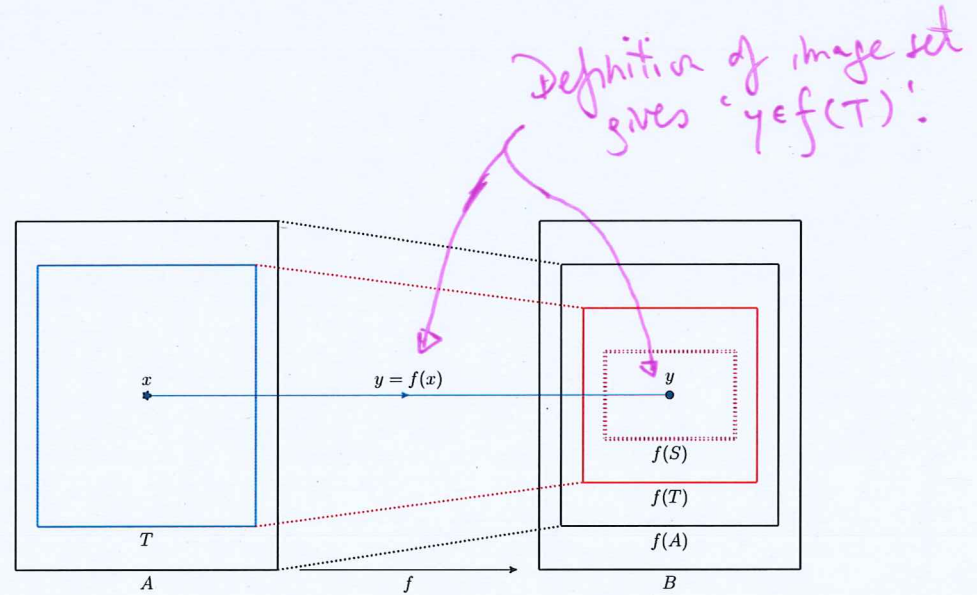 Definition of image set
gives 'y∈f(T)'.
x
y = f(x)
y
f(S)
f(T)
T
f(A)
A
f
B